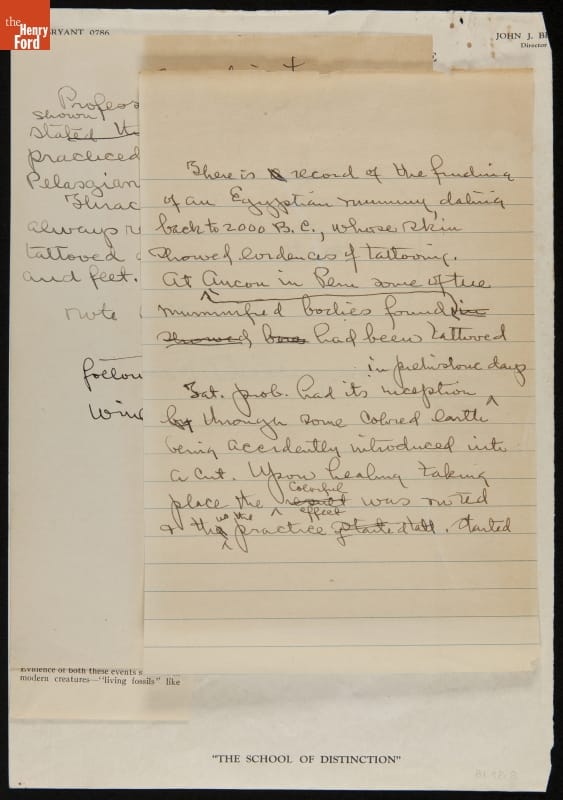 the
Henry
Ford
BRYANT 0786
JOHN J.
Director
Profess
shown
stated th
practiced
Pelasgian
Thrac
always r
tattooed
and feet.
note
follow
Wind
There is record of the finding
of an Egyptian mummy dating
back to 2000 B.C., whose skin
showed evidences of tattooing.
At Ancon in Peru some of the
mummified bodies found
showed had been tattoved
in prehistoric days
Tat. prob. had its inception
by through some colored earth
being accidently introduced into
a cut. Upon healing taking
colorful
place the result was noted
effect
& the practice started tatt. started
Evidence of both these events s
modern creatures—"living fossils" like
"THE SCHOOL OF DISTINCTION"